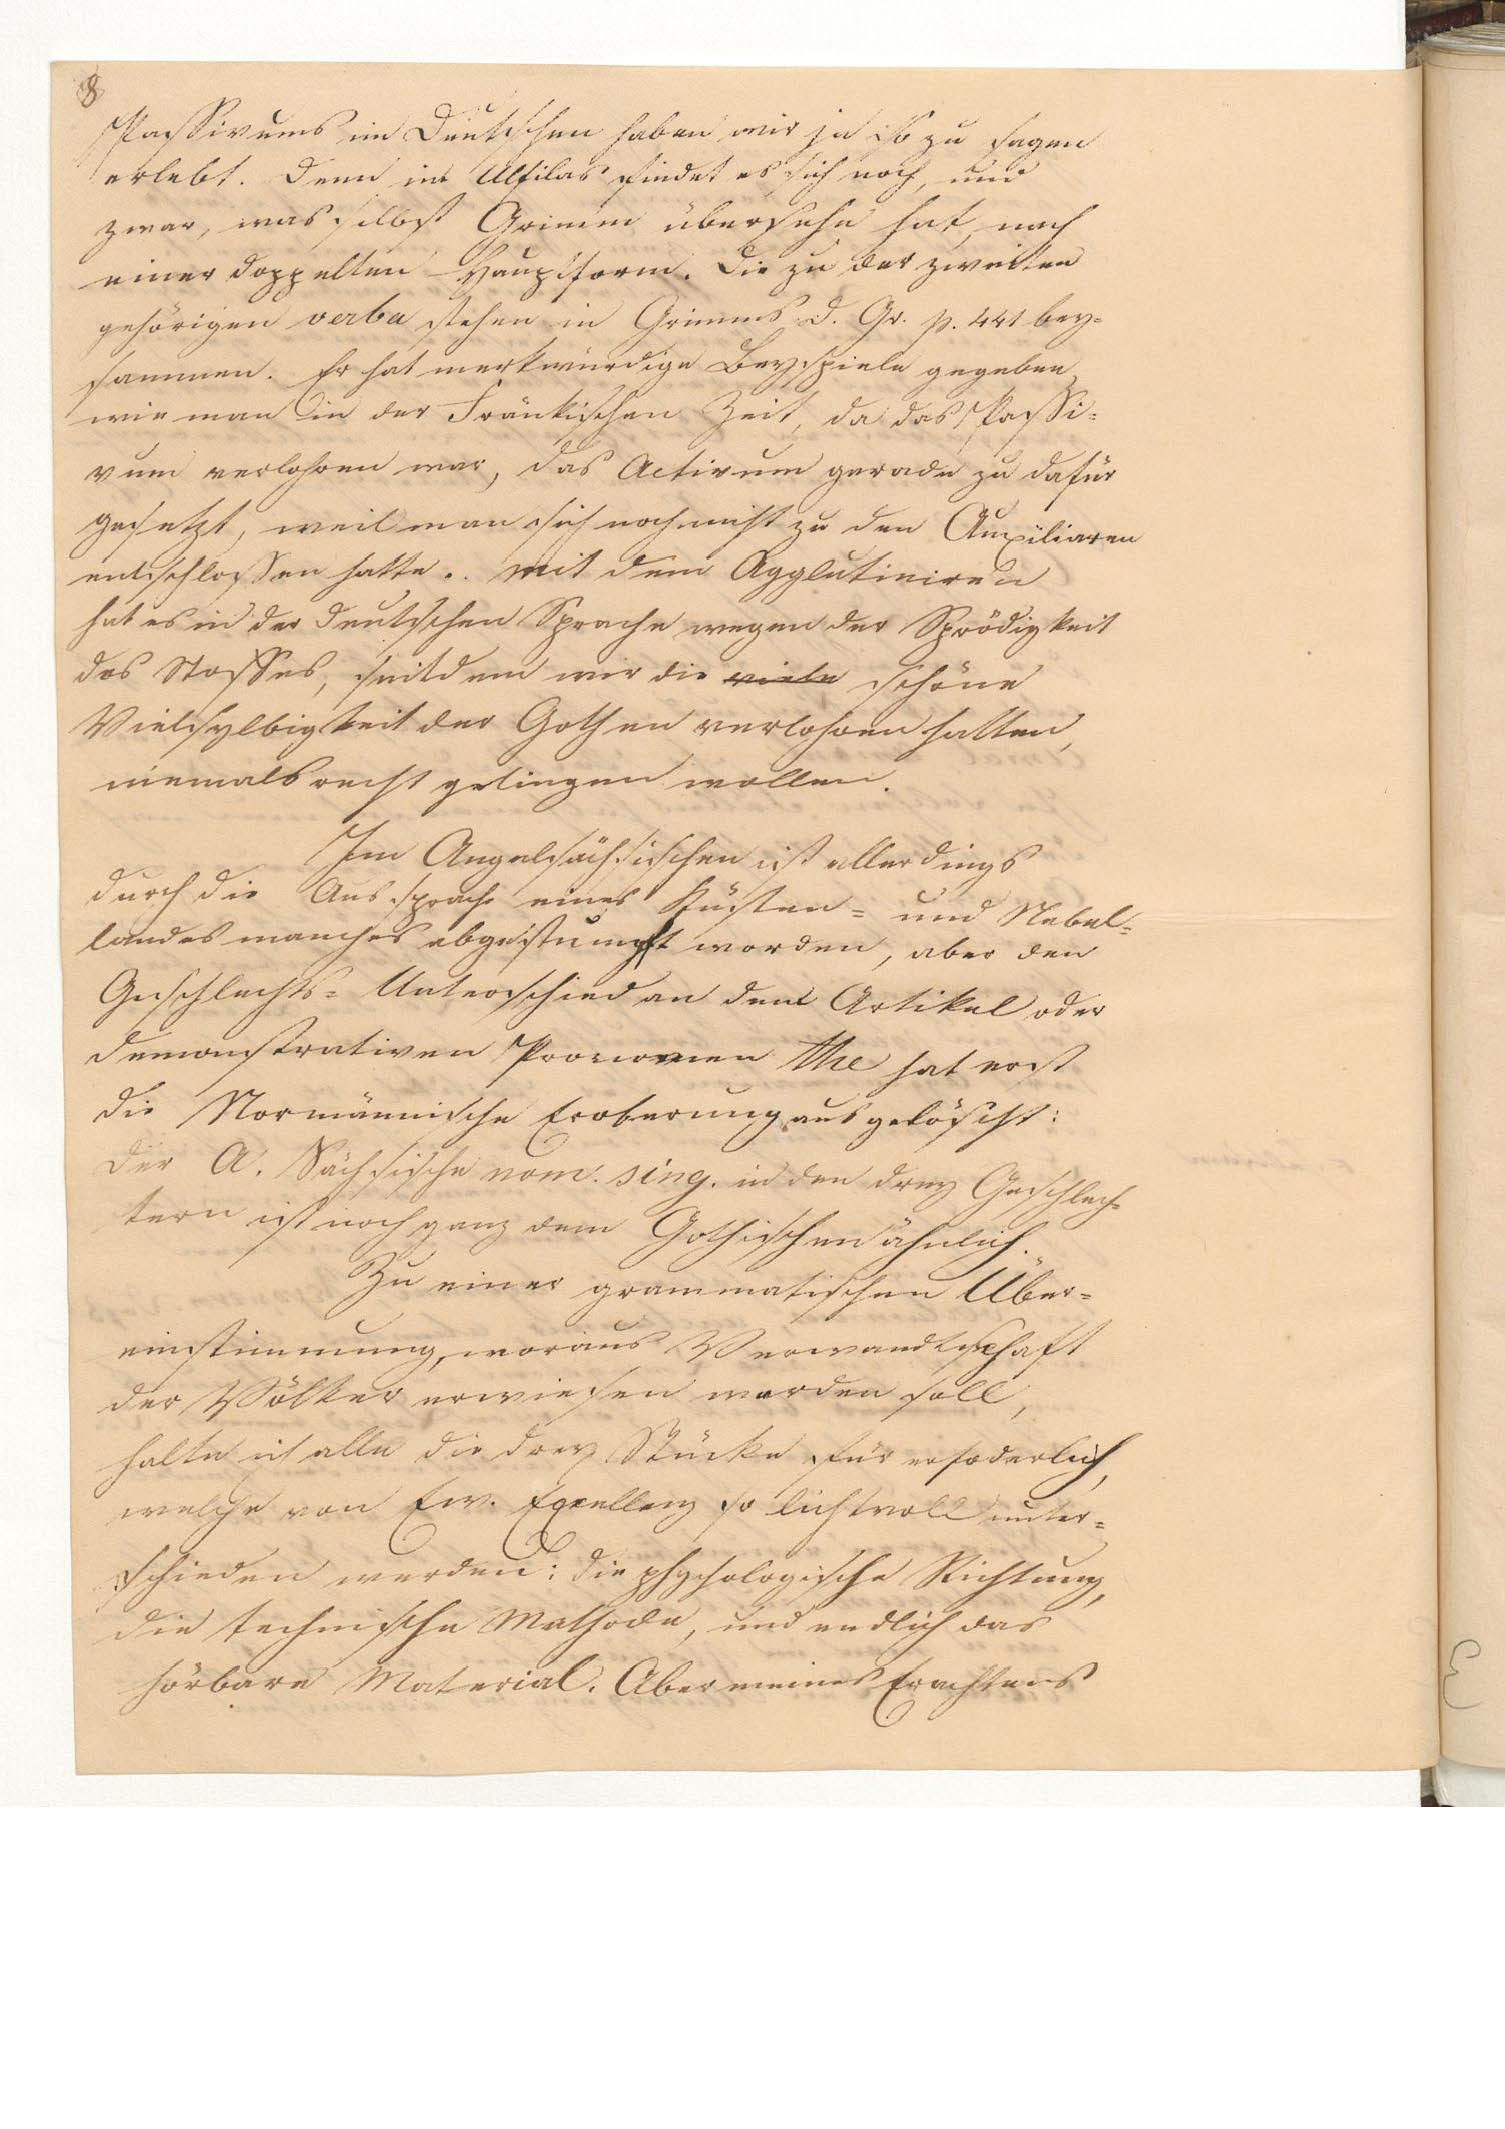 8
Passivums im Deutschen haben wir ja so zu sagen
erlebt. Denn im Ulfilas findet es sich noch, und
zwar, was selbst Grimm übersehn hat, nach
einer doppelten Hauptform. Die zu der zweiten
gehörigen verba stehen in Grimms D. Gr. p. 441 bey=
sammen. Er hat merkwürdige Beyspiele gegeben,
wie man in der Fränkischen Zeit, da das Passi=
vum verlohren war, das Activum gerade zu dafür
gesetzt, weil man sich noch nicht zu den Auxiliaren
entschlossen hatte. Mit dem Agglutiniren
hat es in der deutschen Sprache wegen der Sprödigkeit
des Stoffes, seitdem wir die viele schöne
Vielsylbigkeit der Gothen verlohren hatten,
niemals recht gelingen wollen.
Im Angelsächsischen ist allerdings
durch die Aussprache eines Küsten= und Nebel=
landes manches abgestumpft worden, aber den
Geschlechts=Unterschied an dem Artikel oder
demonstrativen Pronomen the hat erst
die Normännische Eroberung ausgelöscht:
der A. Sächsische nom. sing. in den drey Geschlech=
tern ist noch ganz dem Gothischen ähnlich.
Zu einer grammatischen Über=
einstimmung, woraus Verwandtschaft
der Völker erwiesen werden soll,
halte ich alle die drey Stücke für erfoderlich,
welche von Ew. Excellenz so lichtvoll unter=
schieden werden: die phychologische Richtung,
die technische Methode, und endlich das
hörbare Material. Aber meines Erachtens